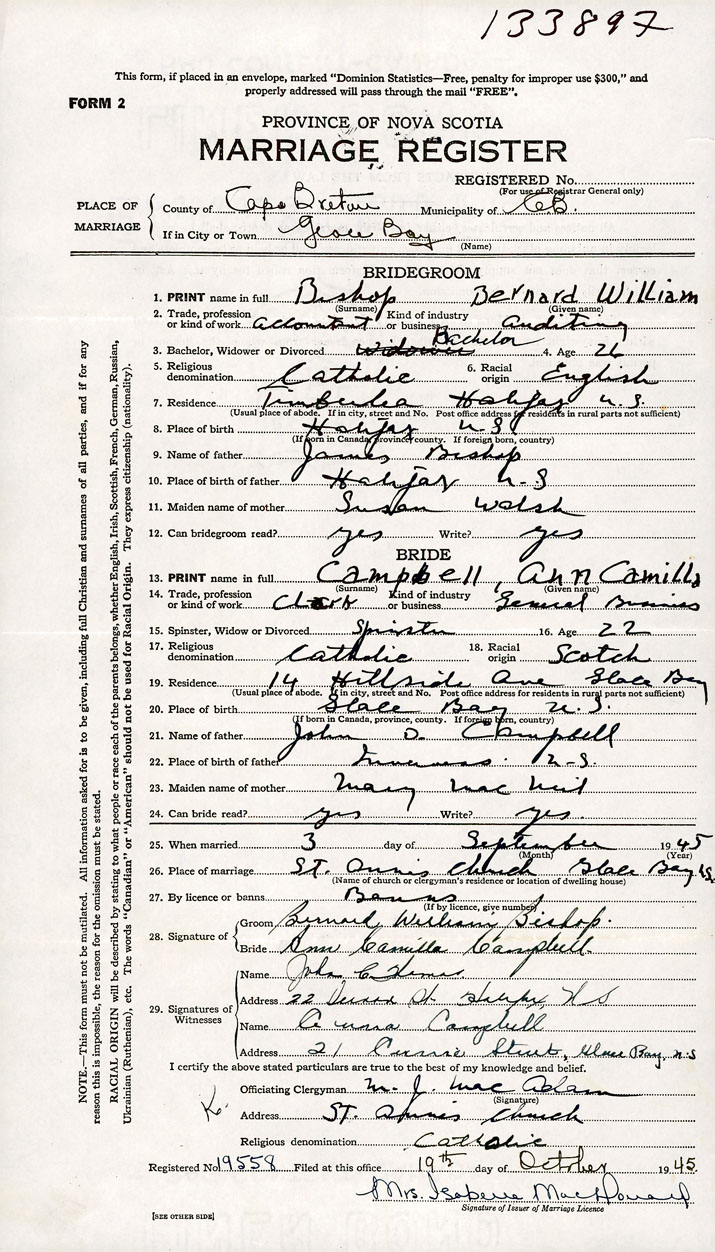 133897
This form, if placed in an envelope, marked "Dominion Statistics—Free, penalty for improper use $300," and
properly addressed will pass through the mail "FREE".
FORM 2
PROVINCE OF NOVA SCOTIA
MARRIAGE REGISTER
REGISTERED No.
(For use of Registrar General only)
PLACE OF MARRIAGE
County of Cape Breton Municipality of C.B.
If in City or Town Glace Bay
(Name)
BRIDEGROOM
1. PRINT name in full Bishop Bernard William
(Surname) (Given name)
2. Trade, profession or kind of work Accountant Kind of industry or business Auditing
3. Bachelor, Widower or Divorced Widower Bachelor 4. Age 26
5. Religious denomination Catholic 6. Racial origin English
7. Residence Timberlea Halifax N.S.
(Usual place of abode. If in city, street and No. Post office address for residents in rural parts not sufficient)
8. Place of birth Halifax N.S.
(If born in Canada, province, county. If foreign born, country)
9. Name of father James Bishop
10. Place of birth of father Halifax N-S
11. Maiden name of mother Susan Walsh
12. Can bridegroom read? yes Write? yes
BRIDE
13. PRINT name in full Campbell, Ann Camilla
(Surname) (Given name)
14. Trade, profession or kind of work Clerk Kind of industry or business General Business
15. Spinster, Widow or Divorced Spinster 16. Age 22
17. Religious denomination Catholic 18. Racial origin Scotch
19. Residence 14 Hillside Ave Glace Bay
(Usual place of abode. If in city, street and No. Post office address for residents in rural parts not sufficient)
20. Place of birth Glace Bay N.S.
(If born in Canada, province, county. If foreign born, country)
21. Name of father John D. Campbell
22. Place of birth of father Inverness N-S.
23. Maiden name of mother Mary Mac Neil
24. Can bride read? yes Write? yes.
25. When married 3 day of September 1945
(Month) (Year)
26. Place of marriage St. Annis Church Glace Bay N.S.
(Name of church or clergyman's residence or location of dwelling house)
27. By licence or banns Banns
(If by licence, give number)
28. Signature of
Groom Bernard William Bishop.
Bride Ann Camilla Campbell.
29. Signatures of Witnesses
Name John C.
Address 22 St. Halifax, N S
Name Campbell
Address 21 Street, Glace Bay, N.S
I certify the above stated particulars are true to the best of my knowledge and belief.
Officiating Clergyman M. J. Mac Adam
(Signature)
Address St. Annis Church
Religious denomination Catholic
Registered No 19558 Filed at this office 19th day of October 1945.
Mrs. Isabelle MacDonald
Signature of Issuer of Marriage Licence
[SEE OTHER SIDE]
NOTE.—This form must not be mutilated. All information asked for is to be given, including full Christian and surnames of all parties, and if for any
reason this is impossible, the reason for the omission must be stated.
RACIAL ORIGIN will be described by stating to what people or race each of the parents belongs, whether English, Irish, Scottish, French, German, Russian,
Ukrainian (Ruthenian), etc. The words "Canadian" or "American" should not be used for Racial Origin. They express citizenship (nationality).